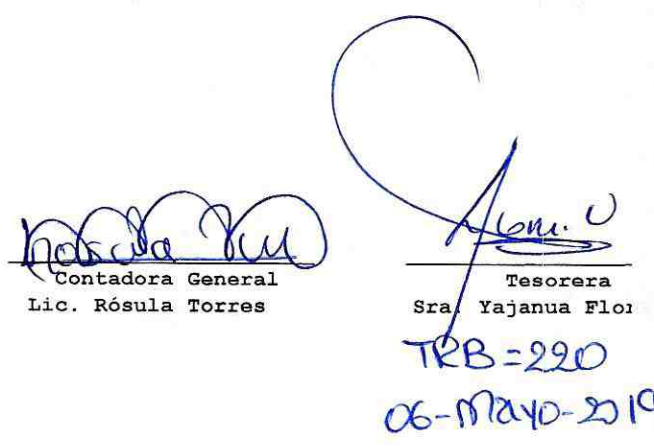 Contadora General
Lic. Rósula Torres
Tesorera
Sra. Yajanua Flor
TRB=220
06-Mayo-2019